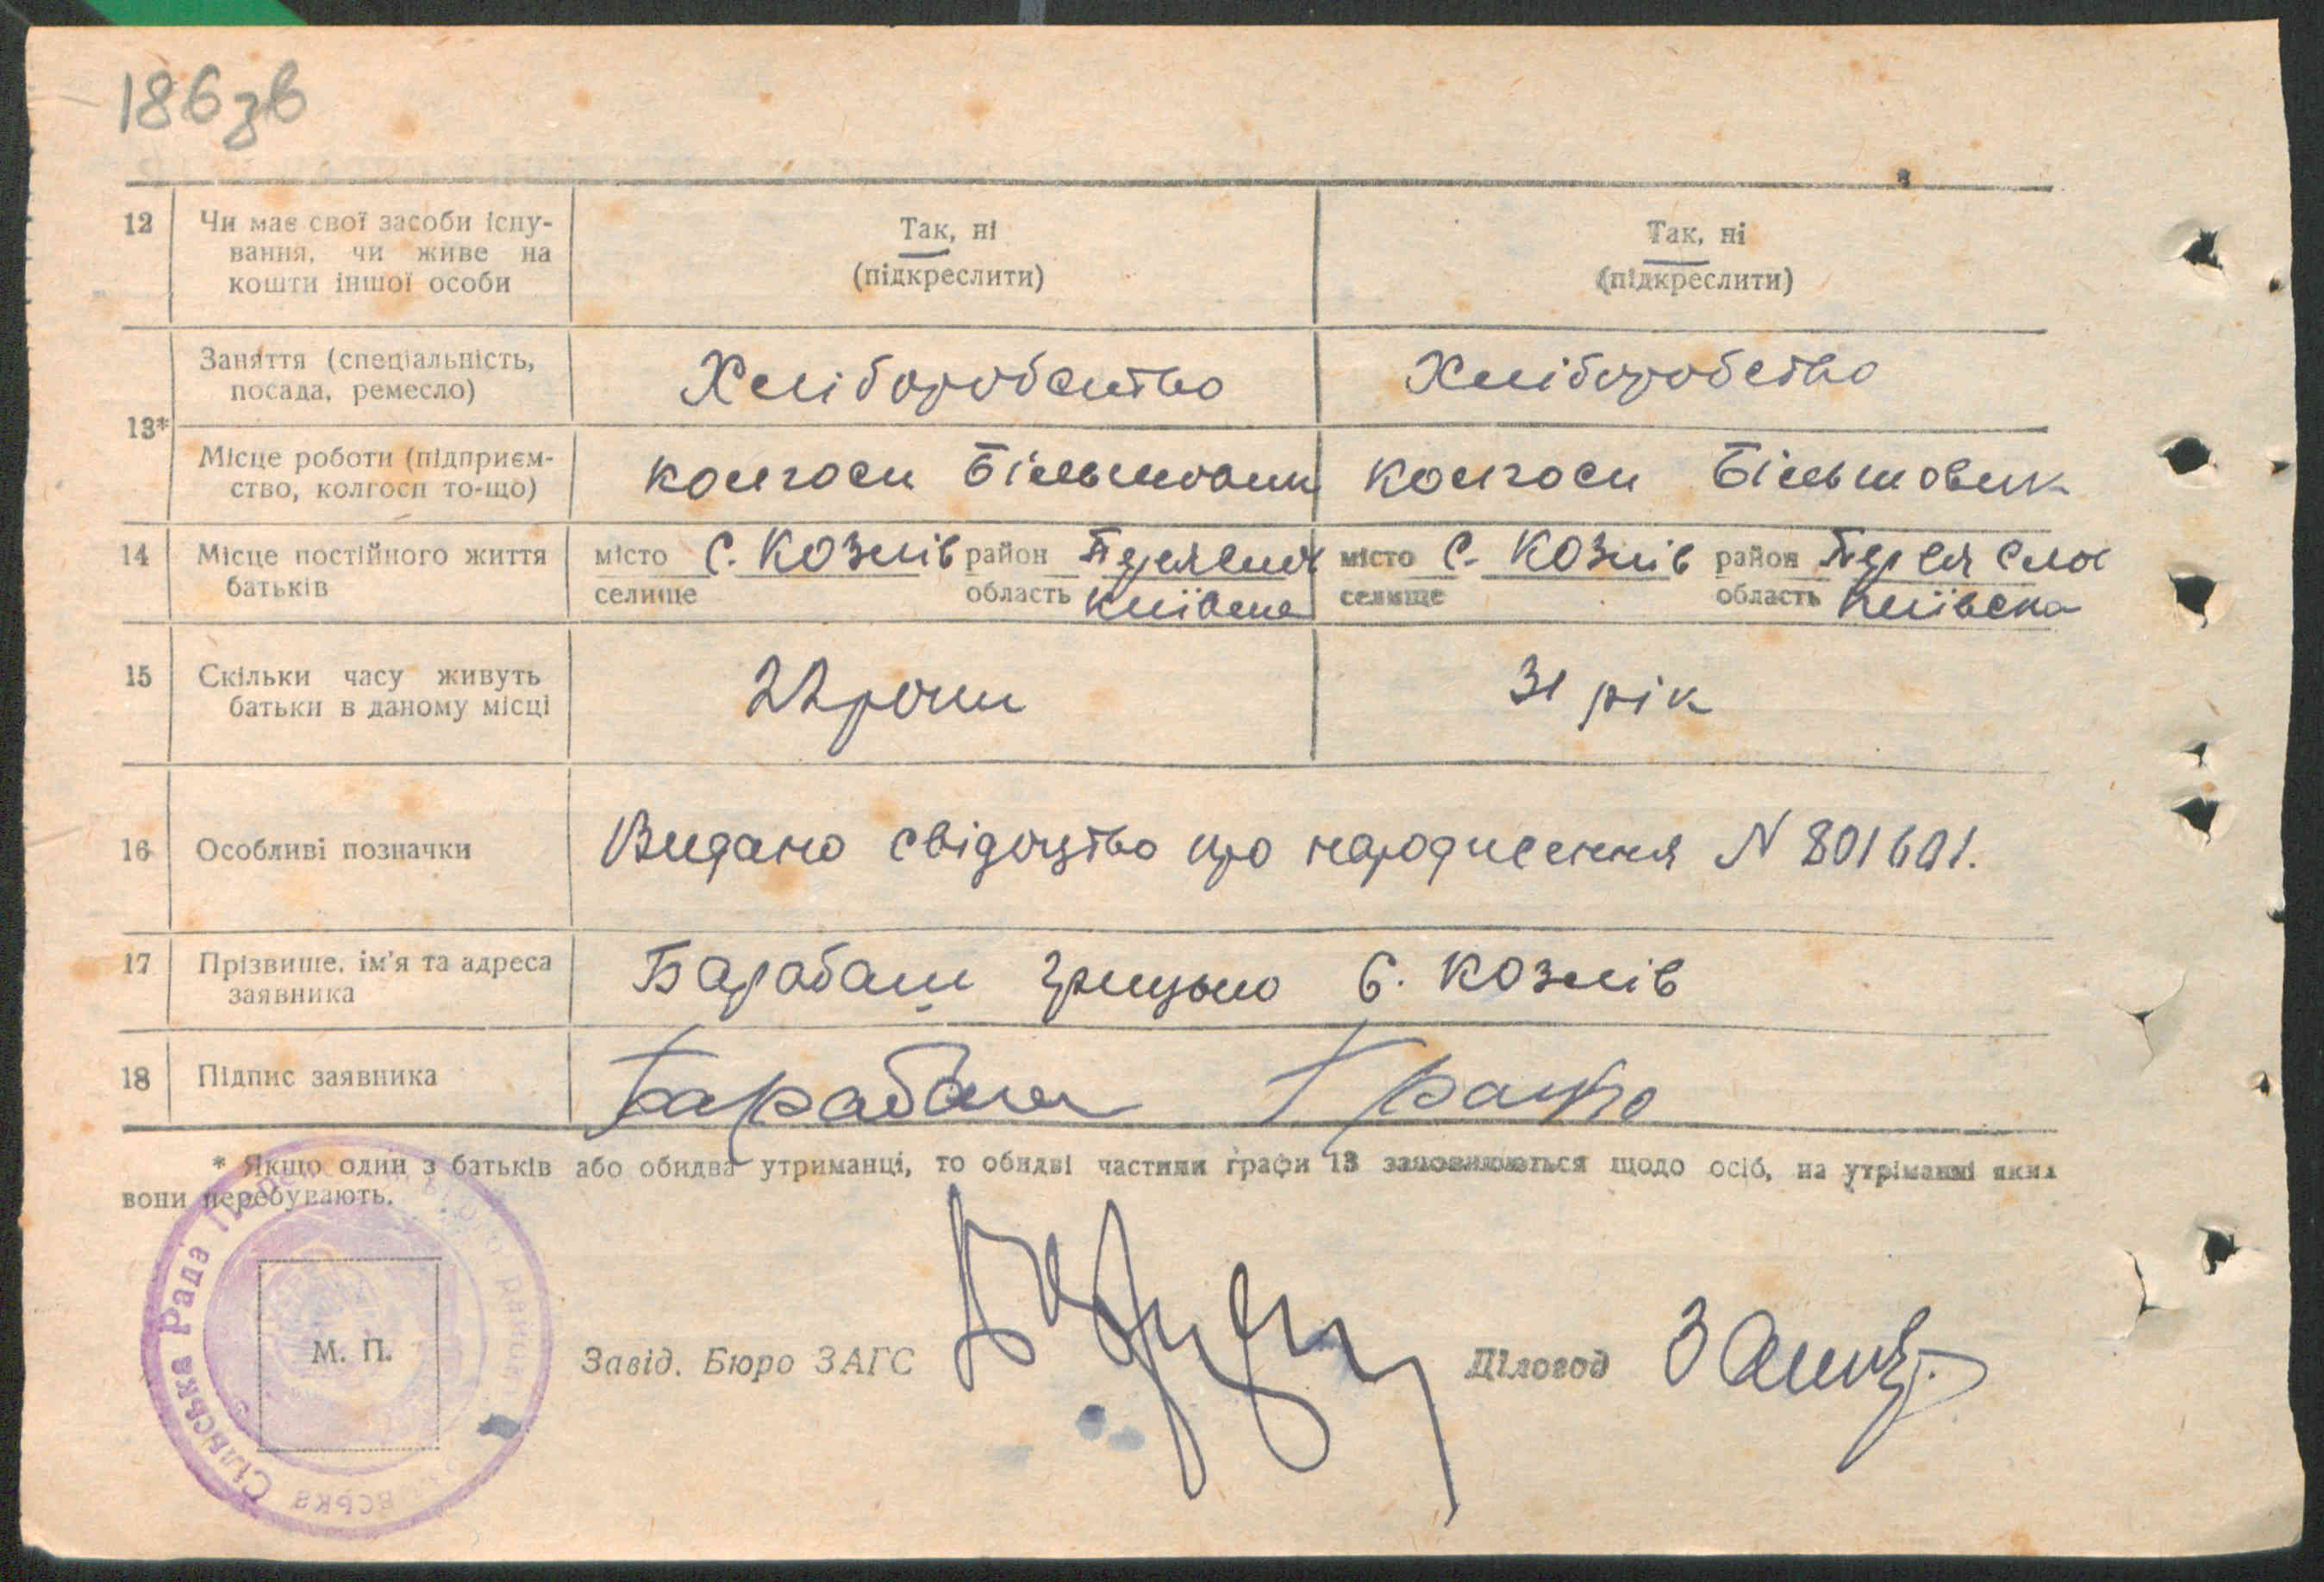 186зв
12 Чи має свої засоби існу- Так, ні Так, ні
вання, чи живе на (підкреслити) (підкреслити)
кошти іншої особи
Заняття (спеціальність, Хліборобство Хліборобство
посада, ремесло)
13*
Місце роботи (підприєм- колгосп Більшовик колгосп Більшовик
ство, колгосп то-що)
14 Місце постійного життя місто С. Козлів район Переяслов місто С. Козлів район Переяслов
батьків селище область Київська селище область Київська
15 Скільки часу живуть 22 роки 31 рік
батьки в даному місці
16 Особливі позначки Видано свідоцтво про народження N 801601.
17 Прізвище, ім'я та адреса Барабаш Грицько с. Козлів
заявника
18 Підпис заявника Барабаш Грицько
* Якщо один з батьків або обидва утриманці, то обидві частини графи 13 заповнюються щодо осіб, на утріманні яких
вони перебувають.
Сільська Рада
району
М. П. Завід. Бюро ЗАГС Діловод